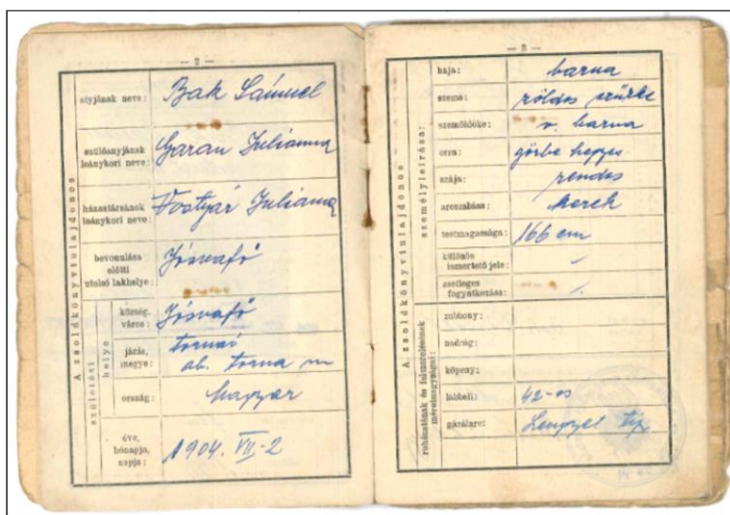 — 2 —
A zsoldkönyvtulajdonos
atyjának neve: Bak Sámuel
szülőanyjának
leánykori neve: Garan Julianna
házastársának
leánykori neve: Vostyár Julianna
bevonulása
előtti
utolsó lakhelye: Jósvafő
születési
helye
község,
város: Jósvafő
járás,
megye: tornai
ab. torna m
ország: Magyar
éve,
hónapja,
napja: 1904. VII-2
— 3 —
A zsoldkönyvtulajdonos
személyleírása:
haja: barna
szeme: zöldes szürke
szemöldöke: v. barna
orra: görbe hegyes
szája: rendes
arcszabása: kerek
testmagassága: 166 cm
különös
ismertető jele: /
esetleges
fogyatkozása: /.
ruházatának és felszerelésének
méretnagyságai:
zubbony:
nadrág:
köpeny:
lábbeli: 42-es
gázálarc: Lengyel tip